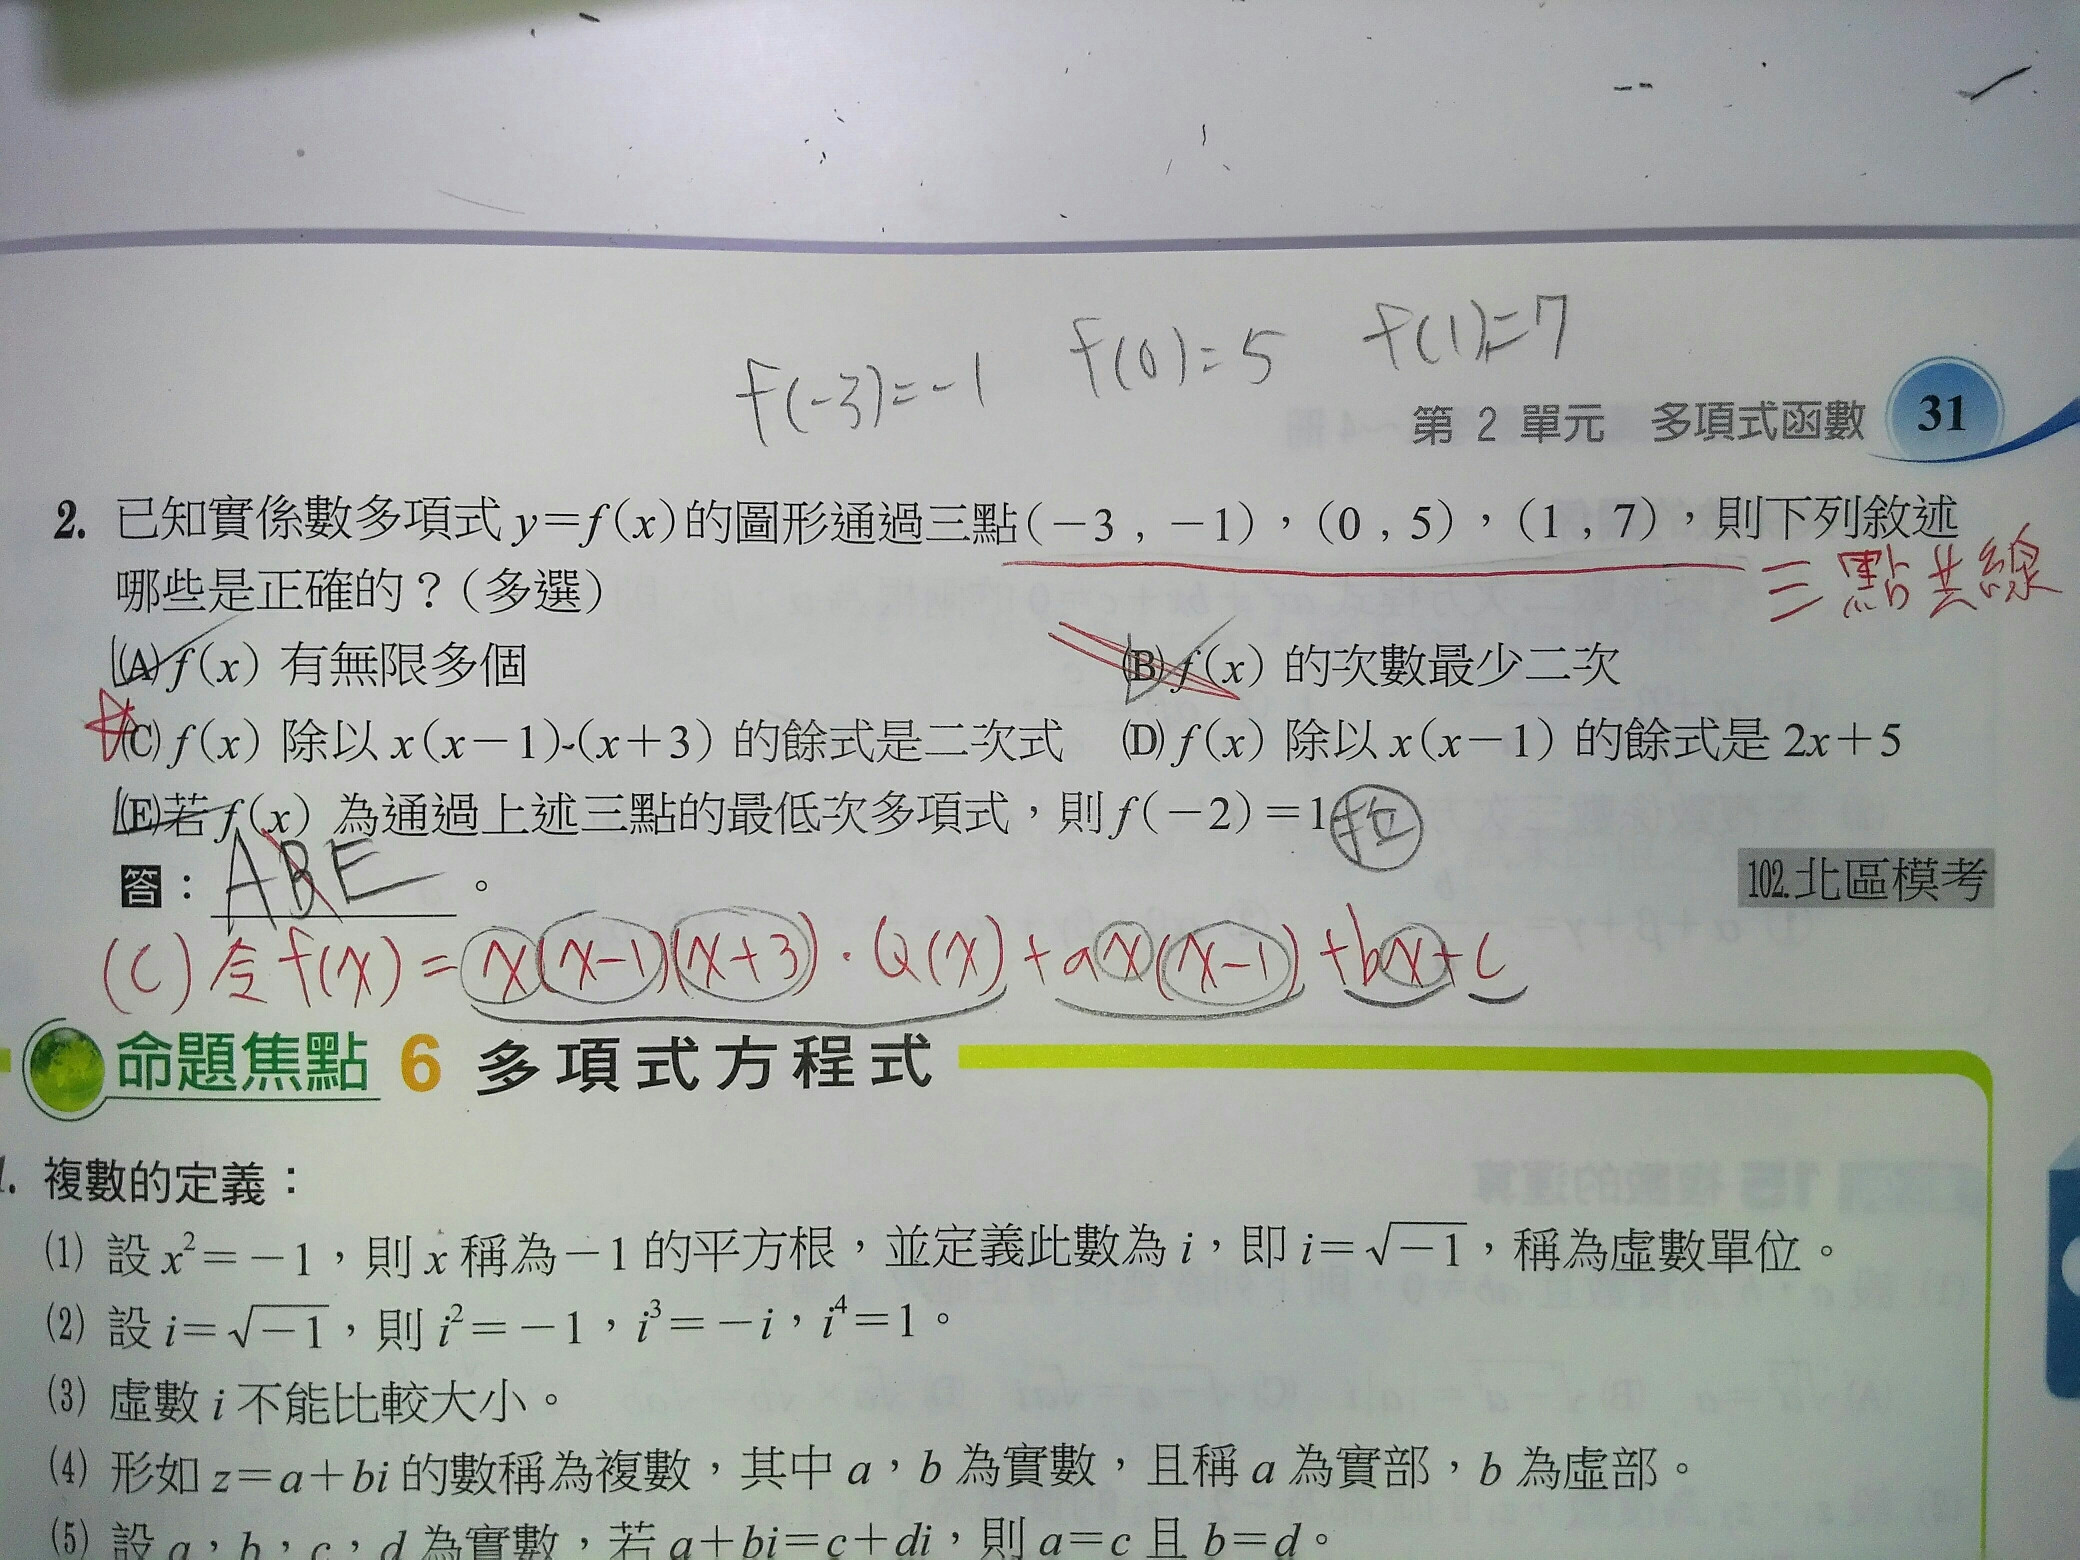 f(-3)=-1 f(0)=5 f(1)=7
第 2 單元 多項式函數 31
2. 已知實係數多項式 y=f(x)的圖形通過三點(-3 , -1),(0 , 5),(1 , 7),則下列敘述
三點共線
哪些是正確的?(多選)
(A) f(x) 有無限多個 (B) f(x) 的次數最少二次
(C) f(x) 除以 x(x-1)-(x+3) 的餘式是二次式 (D) f(x) 除以 x(x-1) 的餘式是 2x+5
(E)若 f(x) 為通過上述三點的最低次多項式,則 f(-2)=1
答: ABE 。
102.北區模考
(C) 令 f(x) = x(x-1)(x+3)·Q(x)+ax(x-1)+bx+c
命題焦點 6 多項式方程式
1. 複數的定義:
(1) 設 x²=-1,則 x 稱為-1 的平方根,並定義此數為 i,即 i=√-1,稱為虛數單位。
(2) 設 i=√-1,則 i²=-1,i³=-i,i⁴=1。
(3) 虛數 i 不能比較大小。
(4) 形如 z=a+bi 的數稱為複數,其中 a,b 為實數,且稱 a 為實部,b 為虛部。
(5) 設 a,b,c,d 為實數,若 a+bi=c+di,則 a=c 且 b=d。